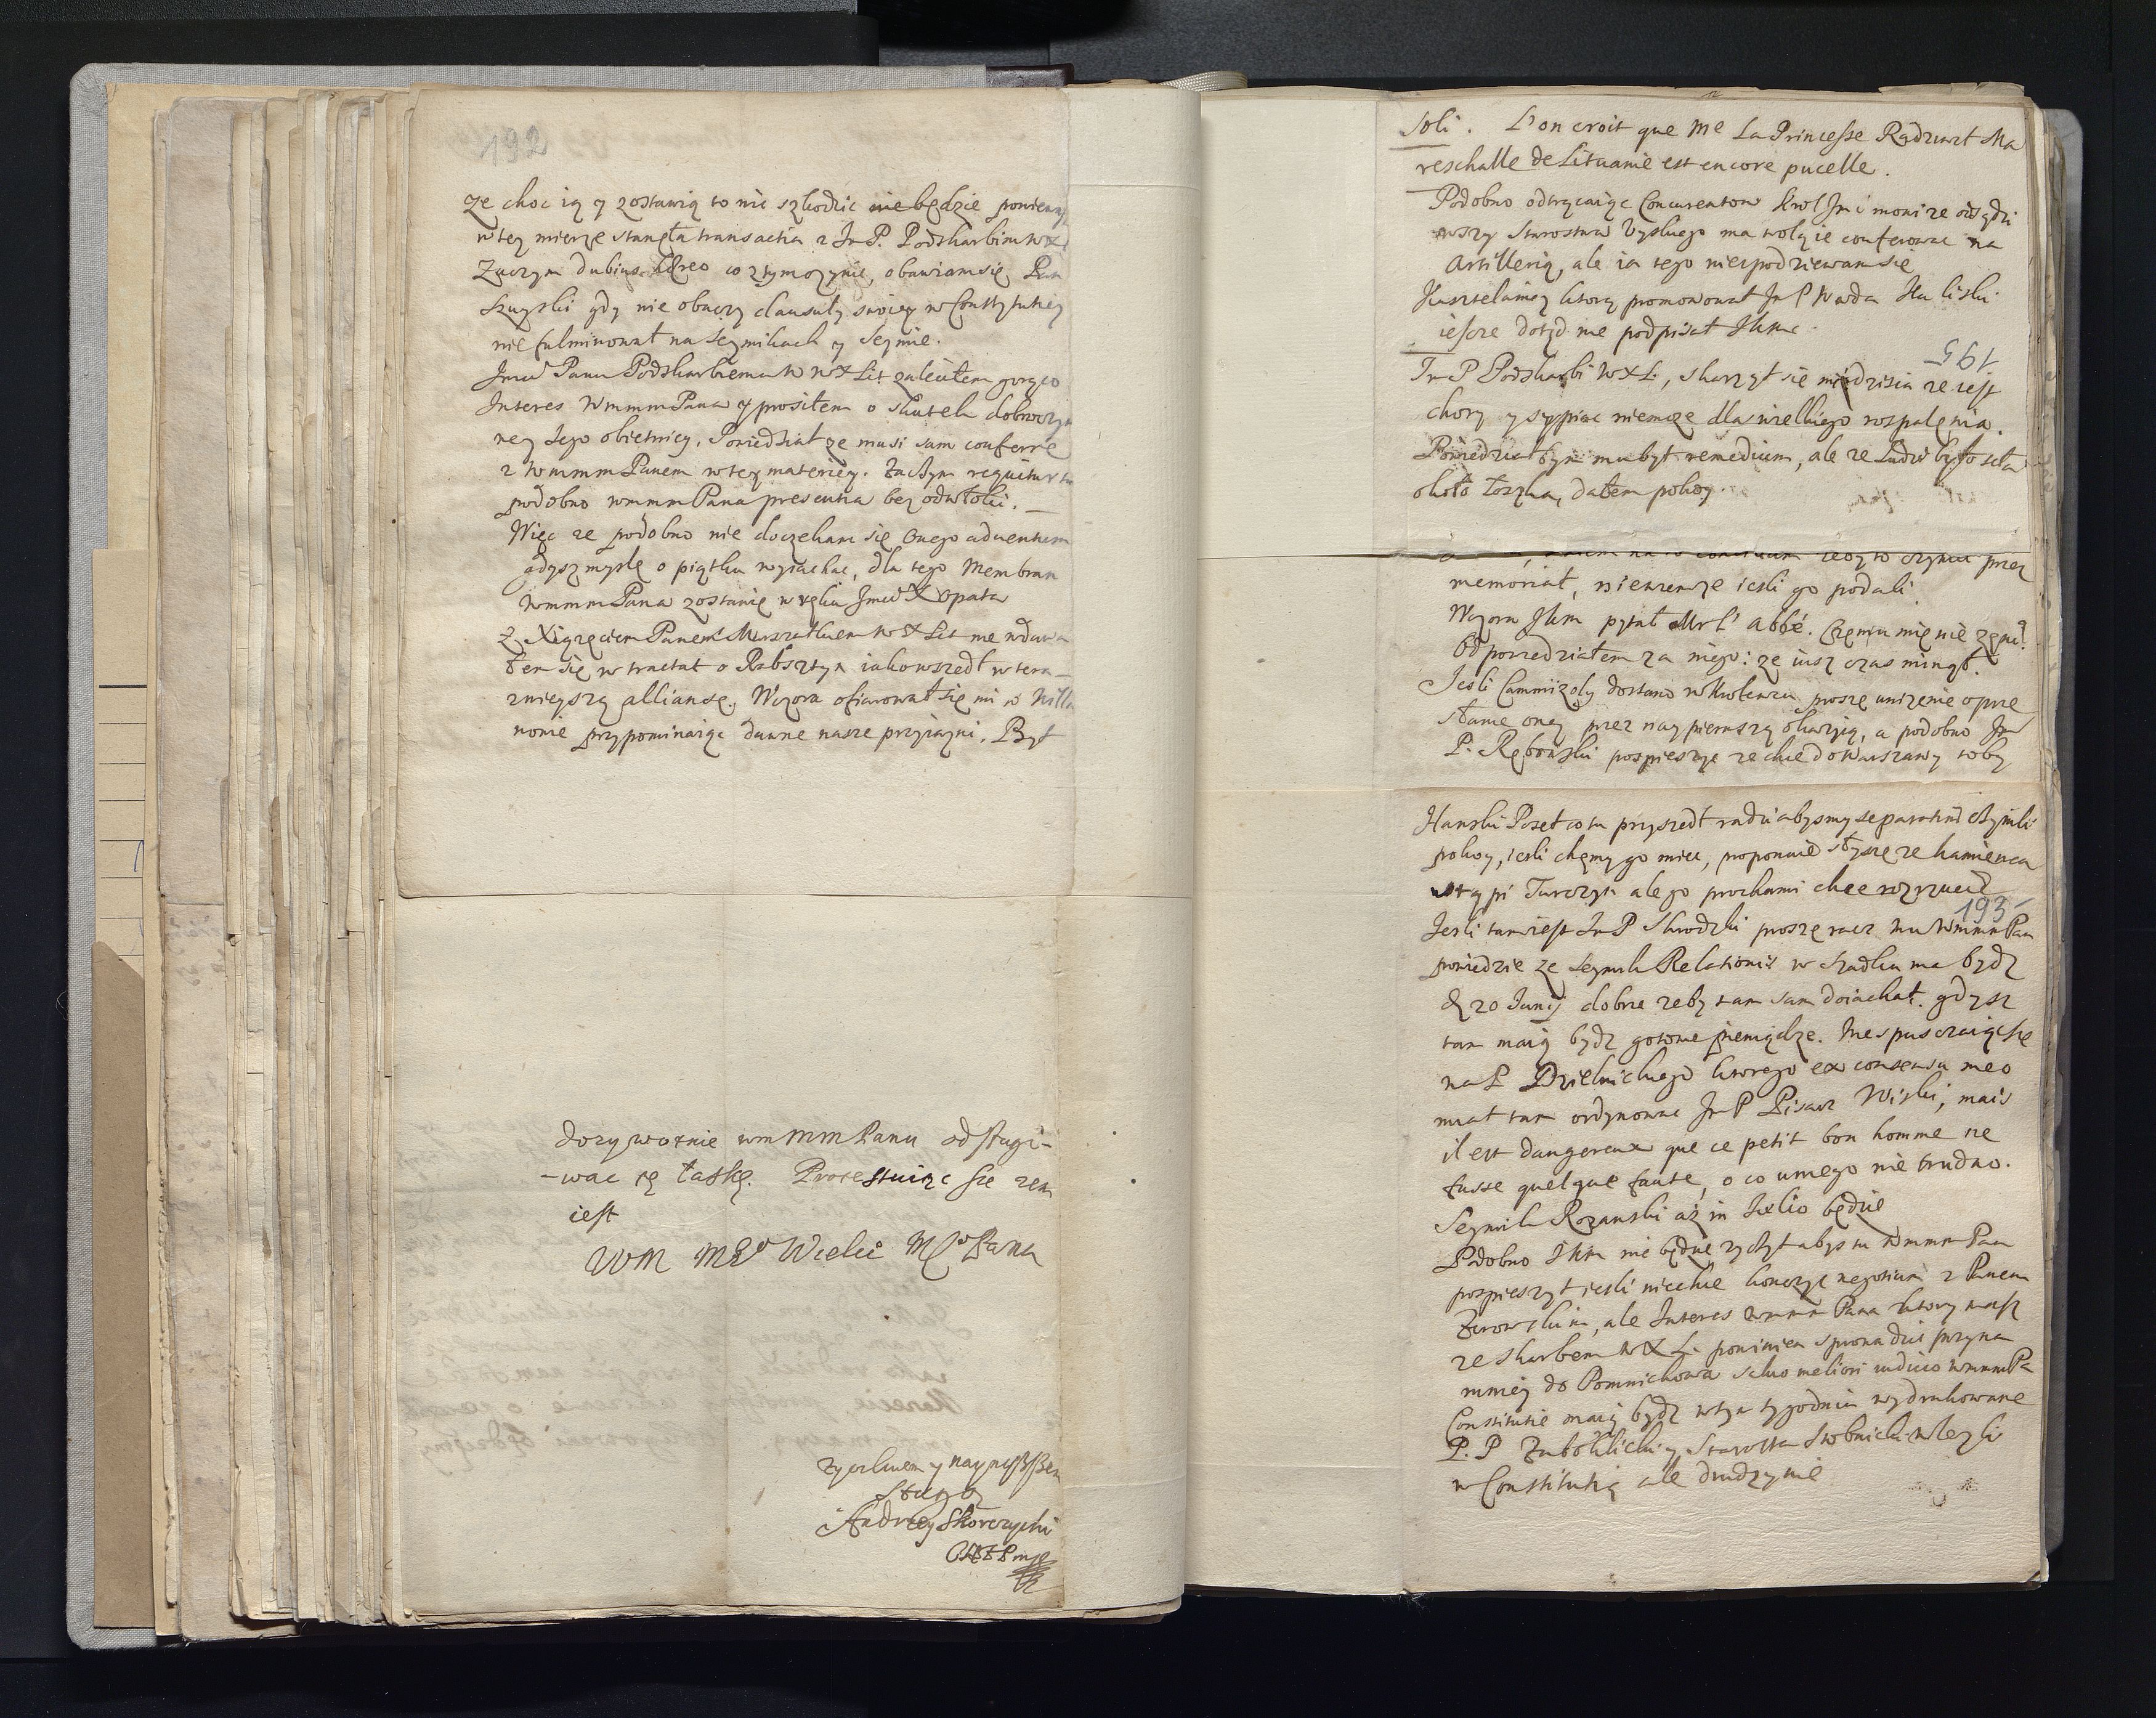 192
ze choc ią y zostawią to nic szkodzic nie będzie poniewaz
w tey mierze stanęła transactia z Im P. Podskarbim WX
Zaczym dubius hæreo co z tym czynic, obawiam się Pan
Szuyski gdy nie obaczy clausuły swoiey w Constytutiey
nie fulminował na Seymikach y Seymie.
Jmci Panu Podskarbiemu W WX Lit zaleciłem gorąco
Interes WmmmPana y prosiłem o skutek dobroczyn
ney Iego obietnicy. Powiedział ze musi sam conferre
z WmmmPanem w tey materiey. Zaczym requitur
podobno wmmmPana presentia bez odwłoki. —
Więc ze podobno nie doczekam się onego adventum
gdysz myslę o piątku wyiachac, dla tego Membran
WmmmPana zostanie w ręku Jmci X Opata
Z Xiązęciem Panem Marszałkiem WX Lit nie wdawa
łem się w tractat o Rabsztyn iako wszedł w tera_
znieyszą alliansę. Wczora ofiarował się mi w Willa
nowie przypominaiąc dawne nasze przyiazni. Był
dozywotnie wmmmPanu odsługi-
-wac tę łaskę. Protestuiąc się zem
iest
WM MP Wielce MP Pana
zyczliwem y naynisszem
Sługą
Andrzey Skorczycki
soli. L'on croit que Me La Princesse Radziwił Ma
reschalle de Lituanie est encore pucelle.
Podobno odtrącaiąc Concurentow Krol Jmć mowi ze osądzi
wszy Starostwa ma wolą ie conferowac na
Artillerią, ale ia tego niespodziewam się
Kasztelaniey ktorą promowował Im P Wda Kaliski
iescze dotąd nie podpisał Jkmc.
195
Im P Podskarbi WXL, skarzył się mi dzisia ze iest
chory y sypiac niemoze dla wielkiego rospalenia.
Powiedziałbym mu był remedium, ale ze Ludzi było siła
około łoszka, dałem pokoy.
zeby to czynili przez
memoriał, niewiem ze iesli go podali
Wczora Jkm pytał Mr l'abbé. Czemu się nie zeni?
Odpowiedziałem za niego: ze iusz czas minął.
Iesli Cammizoly dostano w Krolewcu proszę unizenie o prze
słanie oney przez naypierwszą okazyią, a podobno Im
P. Rębowski pospieszy ze chce do Warszawy toby
Hanski Poseł co tu przyszedł radzi abysmy separatim czynili
pokoy, iesli chcemy go miec, proponuie słyszę ze Kamienca
ustąpi Turczyn ale go prochami chce rozrzucic
193
Iesli tam iest Im P Skrodzki proszę racz mu WmmmPan
powiedzie ze Seymik Relationis w Szadku ma bydz
d 20 Junij dobrze zeby tam sam doiachał. gdysz
tam maią bydz gotowe pieniądze. Niespusczaiąc się
na P Dzielnickiego ktorego ex consensu meo
miał tam ordynowac Im P Pisarz Wiski, mais
il est dangereux que ce petit bon homme ne
fasse quelque faute, o co u niego nie trudno.
Seymik Rozanski az in Julio będzie
Podobno Jkm nie będzie zyczył abys tu WmmmPan
pospieszył iesli niechce konczyc negotium z Panem
Zirowskim, ale Interes WmmmPana ktory masz
ze skarbem WXL. powinien sprowadzic przyna
mniey do Pomnichowa salvo meliori iudicio wmmmPa
Constitutie maią bydz w tym tygodniu wydrukowane
P. P Zaboklicki y Starosta Stobnicki wlezli
w Constitutią ale drudzy nie